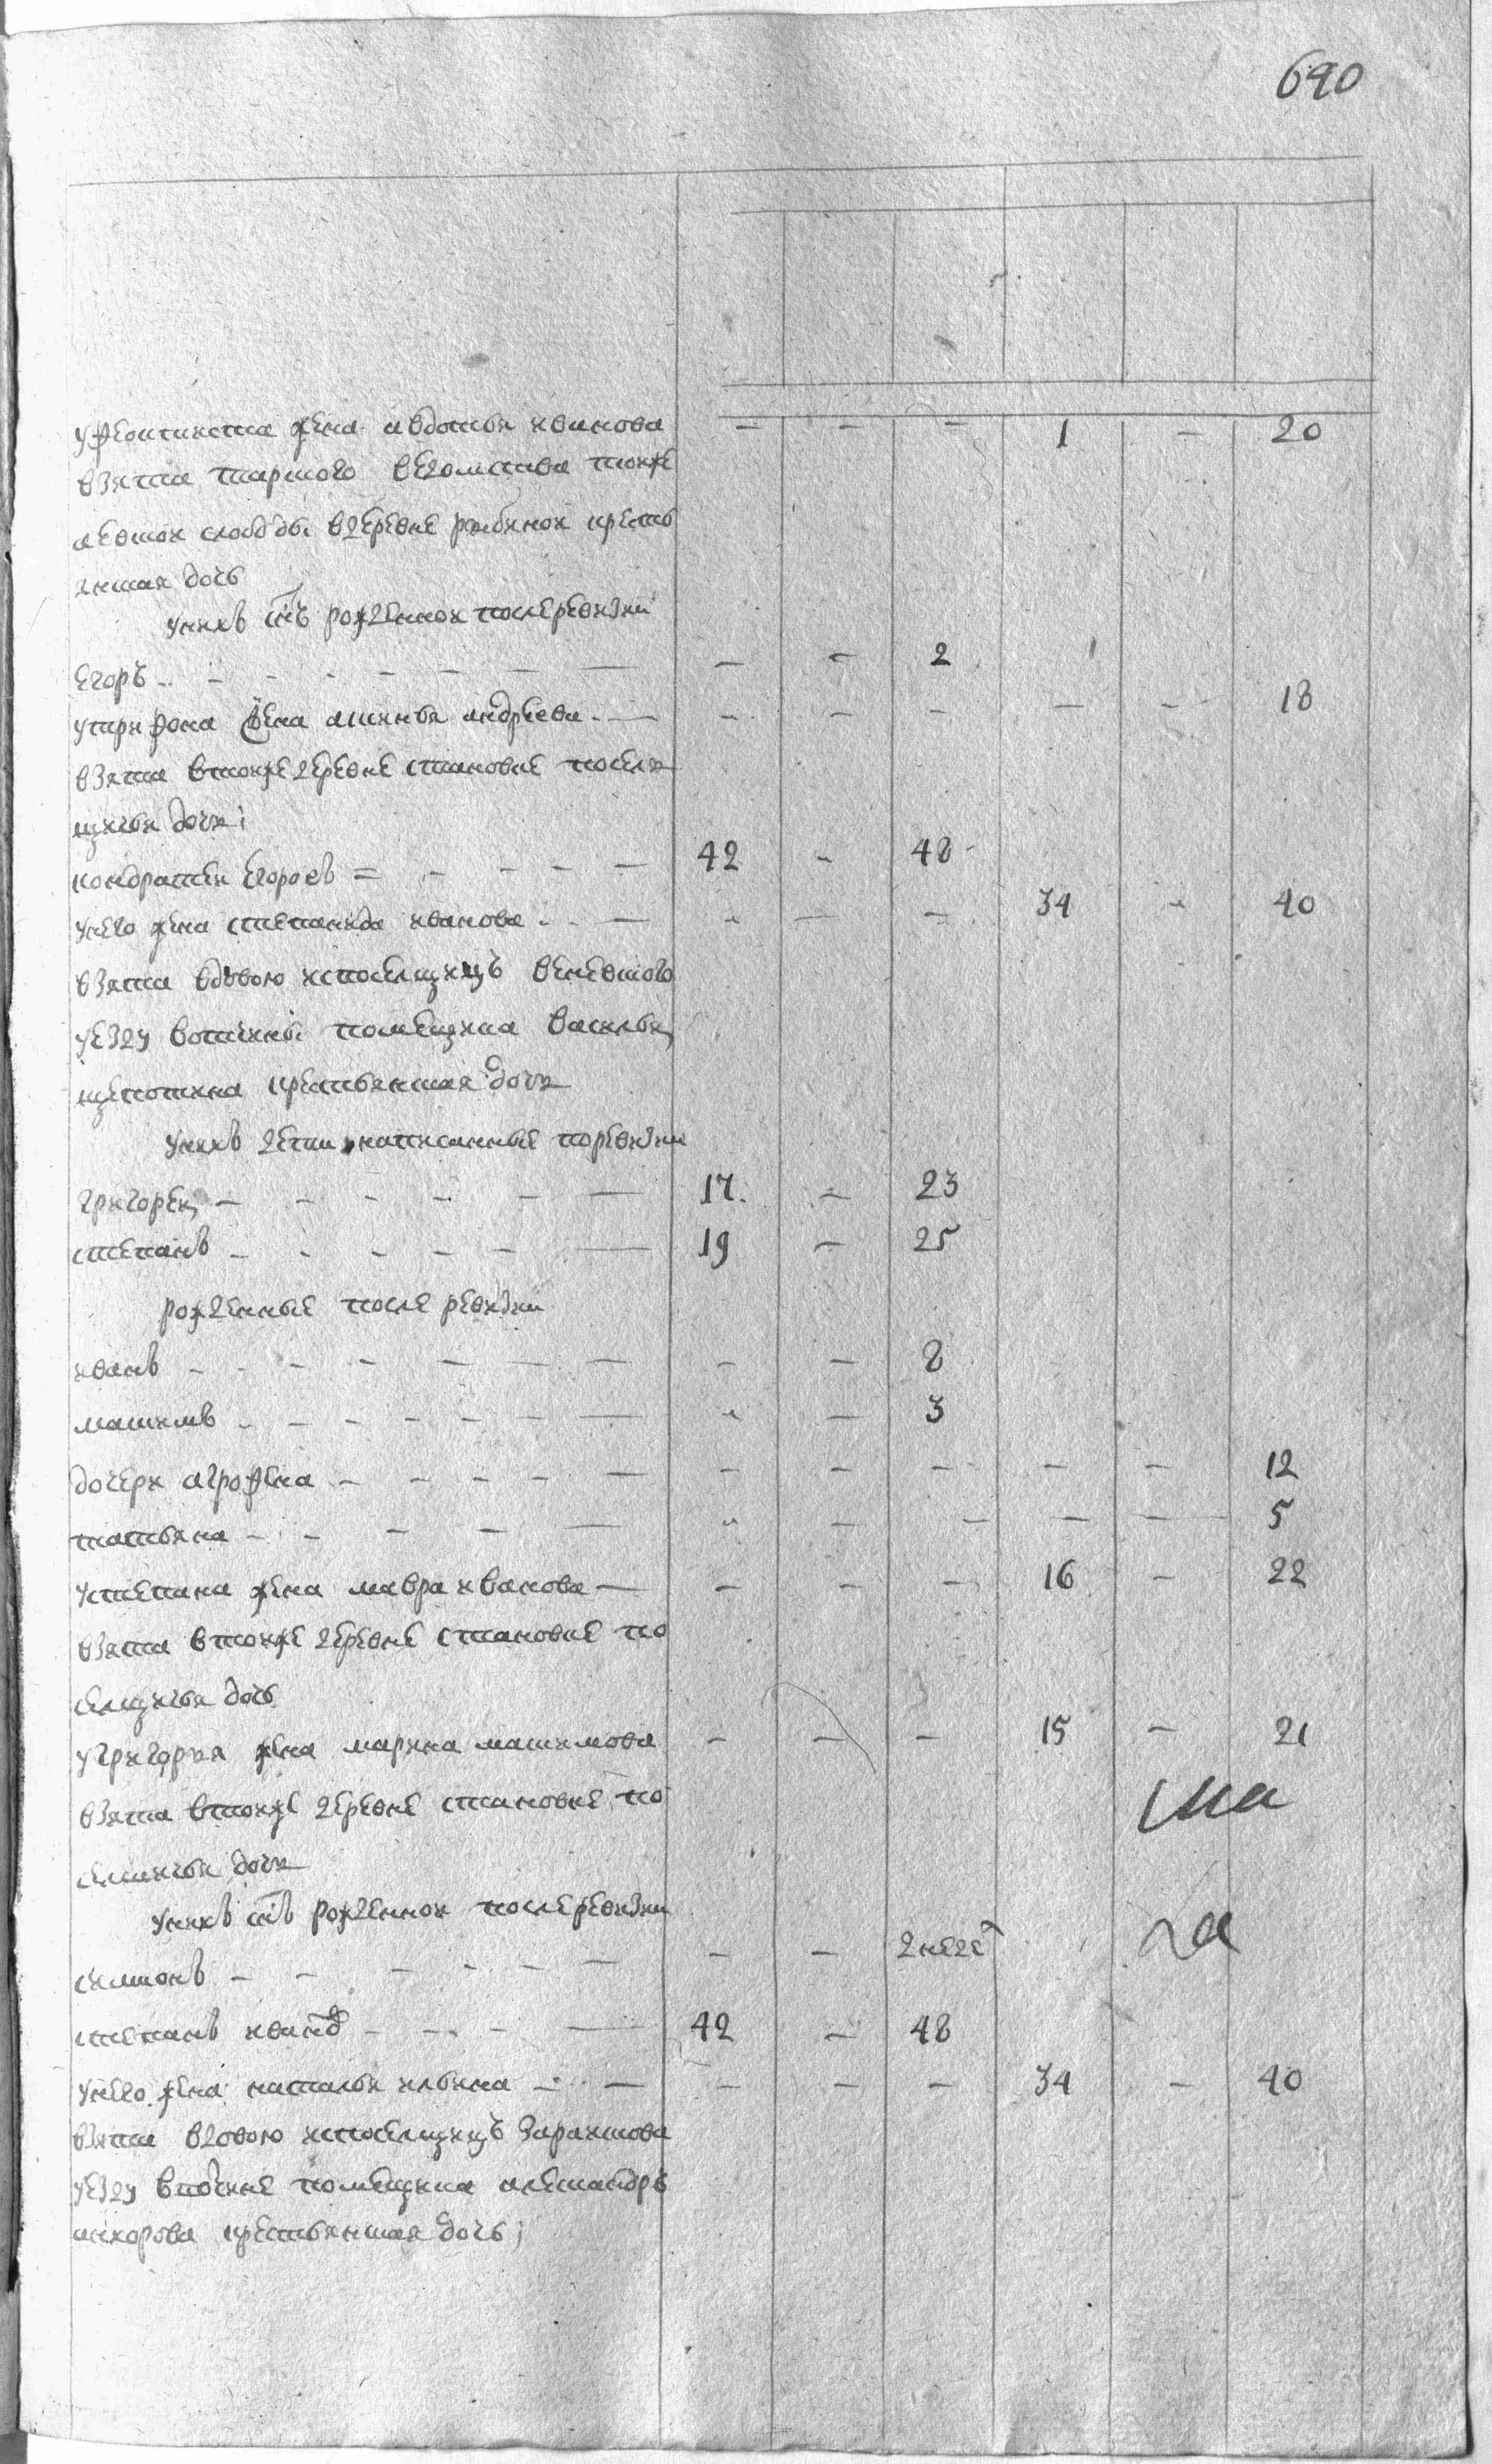 690
у феоктиста жена авдотья иванова - - - 1 - 20
взята тарского ведомства тоже
левской слободы в деревне рыбиной кресть
янская дочь
у них снъ рожденной после ревизии
егоръ - - 2
у трифона жена аксинья андреева - - - - - 18
взята в тоже деревне становке посели
щичья дочи
кондратеи егоровъ 42 - 48
у него жена степанида иванова - - - 34 - 40
взята вдовою ис поселщицъ веневского
уезду вотчины помещика василья
щепотина крестьянская дочи
у них дети написанные по ревизии
григореи 17 - 23
степанъ 19 - 25
рожденные после ревизии
иванъ - - 8
максимъ - - 3
дочери агрофена - - - - - 12
татьяна - - - - - 5
у степана жена мавра иванова - - - 16 - 22
взята в тоже деревне становке по
селщичья дочь
у григорья жена марина максимова - - - 15 - 21
взята в тоже деревне становке по
селщичья дочи
у них снъ рожденной после ревизии
симионъ - - 2 неде
степанъ иванов 42 - 48
у него жена наталья ильина - - - 34 - 40
взята вдовою ис поселщицъ
уезду вотчине помещика александръ
крестьянская дочь